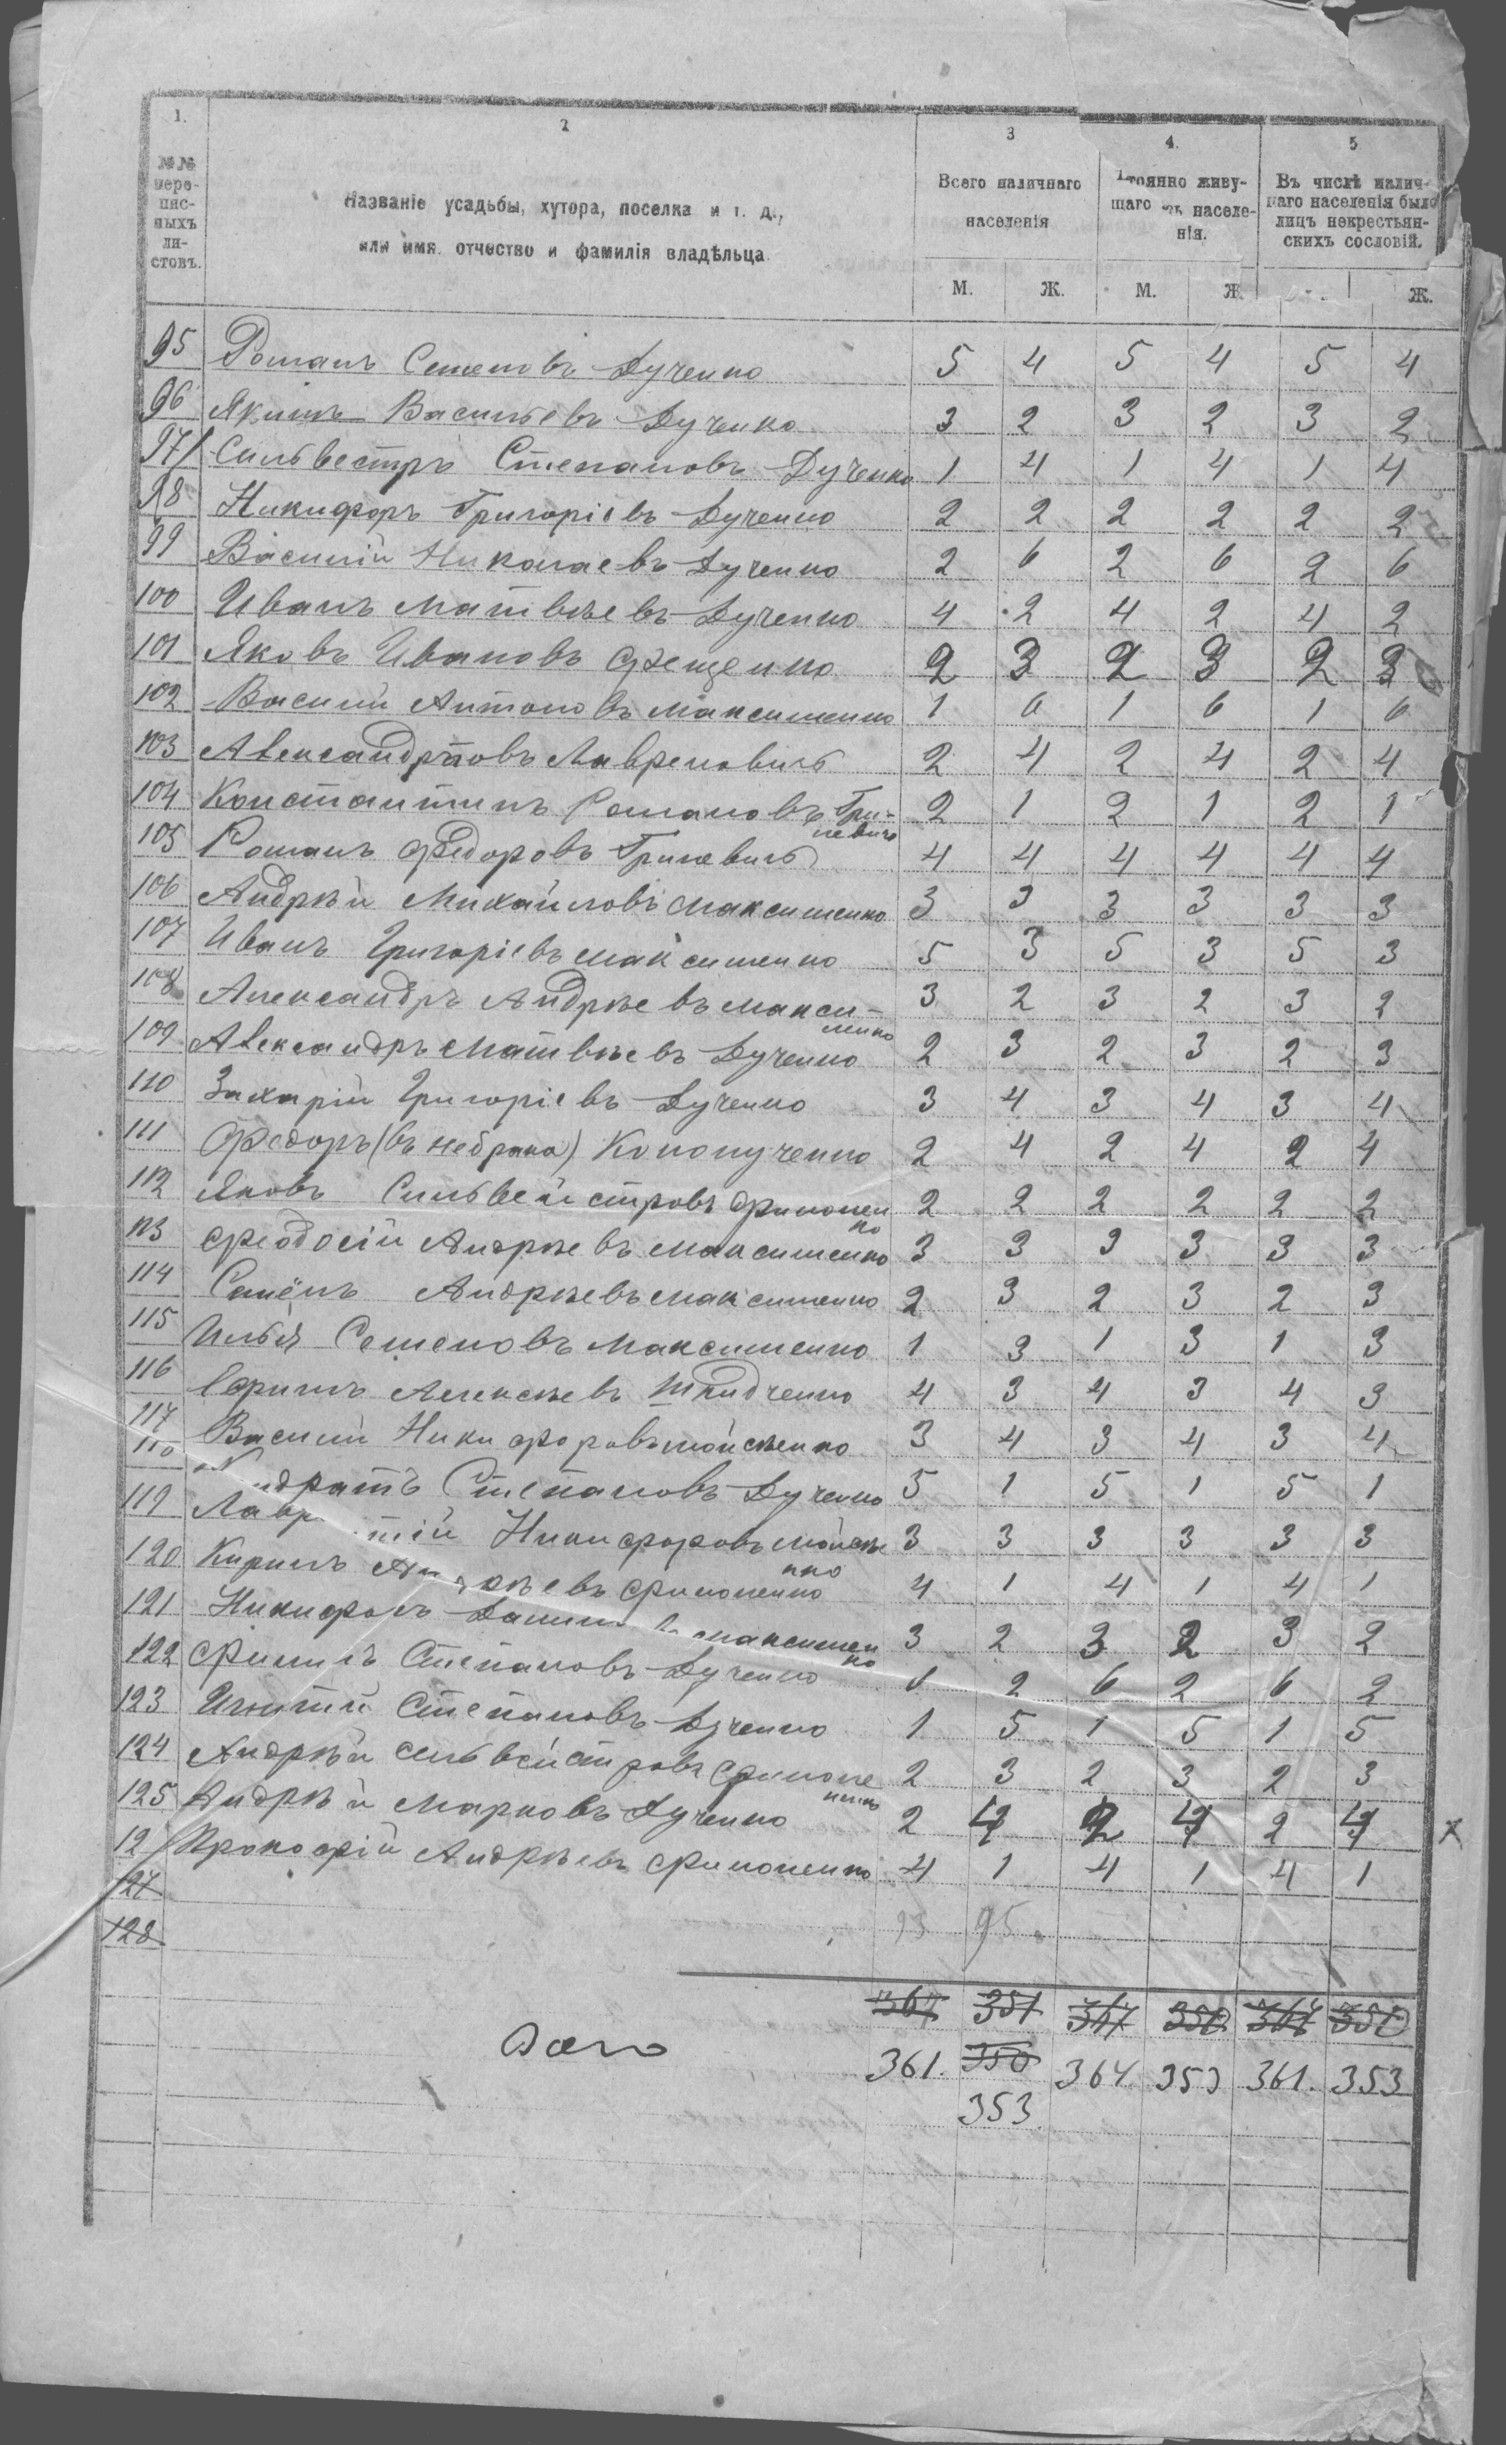 1. 2 3 4. 5
№№ пере- пис- ныхъ ли- стовъ.
Названіе усадьбы, хутора, поселка и т. д.,
или имя, отчество и фамилія владѣльца.
Всего наличнаго населенія
тоянно живу- щаго населе- нія.
Въ числѣ налич- наго населенія было лицъ некрестьян- скихъ сословій.
М. Ж. М. Ж Ж.
95 Романъ Семеновъ Дученко 5 4 5 4 5 4
96 Якимъ Васильевъ Дученко 3 2 3 2 3 2
97 Сильвестръ Степановъ Дученко 1 4 1 4 1 4
98 Никифоръ Григоріевъ Дученко 2 2 2 2 2 2
99 Василій Николаевъ Дученко 2 6 2 6 2 6
100 Иванъ Матвѣевъ Дученко 4 2 4 2 4 2
101 Яковъ Ивановъ Фещенко 2 3 2 3 2 3
102 Василий Антоновъ Максименко 1 6 1 6 1 6
103 Александръ Лавреновичъ 2 4 2 4 2 4
104 Константинъ Романовъ Гри- 2 1 2 1 2 1
невичъ
105 Романъ Федоровъ Гриневичъ 4 4 4 4 4 4
106 Андрѣй Михайловъ Максименко 3 3 3 3 3 3
107 Иванъ Григоріевъ Максименко 5 3 5 3 5 3
108 Александръ Андрѣевъ Макси- 3 2 3 2 3 2
менко
109 Александръ Матвѣевъ Дученко 2 3 2 3 2 3
110 Захарій Григоріевъ Дученко 3 4 3 4 3 4
111 Федоръ (въ небрака) Конопученко 2 4 2 4 2 4
112 Яковъ Сильвейстровъ Филонен 2 2 2 2 2 2
ко
113 Феодосій Андрѣевъ Максименко 3 3 3 3 3 3
114 Семёнъ Андрѣевъ Максименко 2 3 2 3 2 3
115 Илья Семеновъ Максименко 1 3 1 3 1 3
116 Ефимъ Алексѣевъ Шкидченко 4 3 4 3 4 3
117 Василий Никифоровъ Мойсѣенко 3 4 3 4 3 4
118 дратъ Степановъ Дученко 5 1 5 1 5 1
119 Лавр тій Никифоровъ Мойсѣе 3 3 3 3 3 3
нко
120 Кирилъ Ан ѣевъ Филоненко 4 1 4 1 4 1
121 Никифоръ Данил въ Максимен 3 2 3 2 3 2
ко
122 Филипъ Степановъ Дученко 6 2 6 2 6 2
123 Игнатій Степановъ Дученко 1 5 1 5 1 5
124 Андрѣй Сильвейстровъ Филоне 2 3 2 3 2 3
нко
125 Андрѣй Марковъ Дученко 2 4 2 4 2 4 х
12 Прокофій Андрѣевъ Филоненко 4 1 4 1 4 1
127
128 93 95.
367 351 367 350 367 350
361. 350 364 353 361. 353
353.